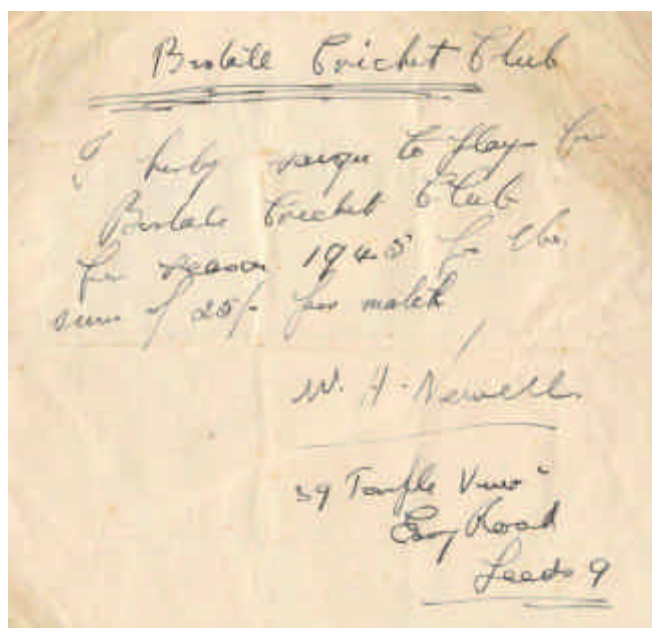 Birstall Cricket Club
I herby resign to play for
Birstall Cricket Club
for season 1945 for the
sum of 25/- per match
W. H. Newell
39 Temple View
Easy Road
Leeds 9